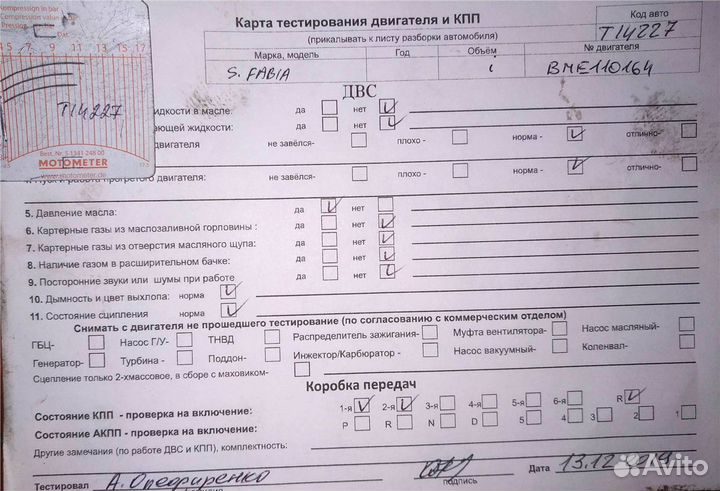 Compression in bar
Compression value
Pression
Dat
5 7 9 11 13 15 17
T14227
Best. Nr. 5 1341 248 00
MOTOMETER
www.motometer.de
17.5
Карта тестирования двигателя и КПП
(прикалывать к листу разборки автомобиля)
Код авто
T14227
Марка, модель Год Объём № двигателя
S. FABIA BME110164
ДВС
жидкости в масле: да нет V
ющей жидкости: да нет V
двигателя не завёлся- плохо - норма - V отлично-
прогретого двигателя: не завёлся- плохо - норма - V отлично-
5. Давление масла: да V нет
6. Картерные газы из маслозаливной горловины : да нет V
7. Картерные газы из отверстия масляного щупа: да нет V
8. Наличие газом в расширительном бачке: да нет V
9. Посторонние звуки или шумы при работе да нет V
10. Дымность и цвет выхлопа: норма V
11. Состояние сцепления норма V
Снимать с двигателя не прошедшего тестирование (по согласованию с коммерческим отделом)
ГБЦ- Насос Г/У- ТНВД Распределитель зажигания- Муфта вентилятора- Насос масляный-
Генератор- Турбина - Поддон- Инжектор/Карбюратор - Насос вакуумный- Коленвал-
Сцепление только 2-хмассовое, в сборе с маховиком-
Коробка передач
Состояние КПП - проверка на включение: 1-я V 2-я V 3-я 4-я 5-я 6-я R V
Состояние АКПП - проверка на включение: P R N D 5 4 3 2 1
Другие замечания (по работе ДВС и КПП), комплектность:
Тестировал А. Опефиренко подпись Дата 13.12.2019
Avito